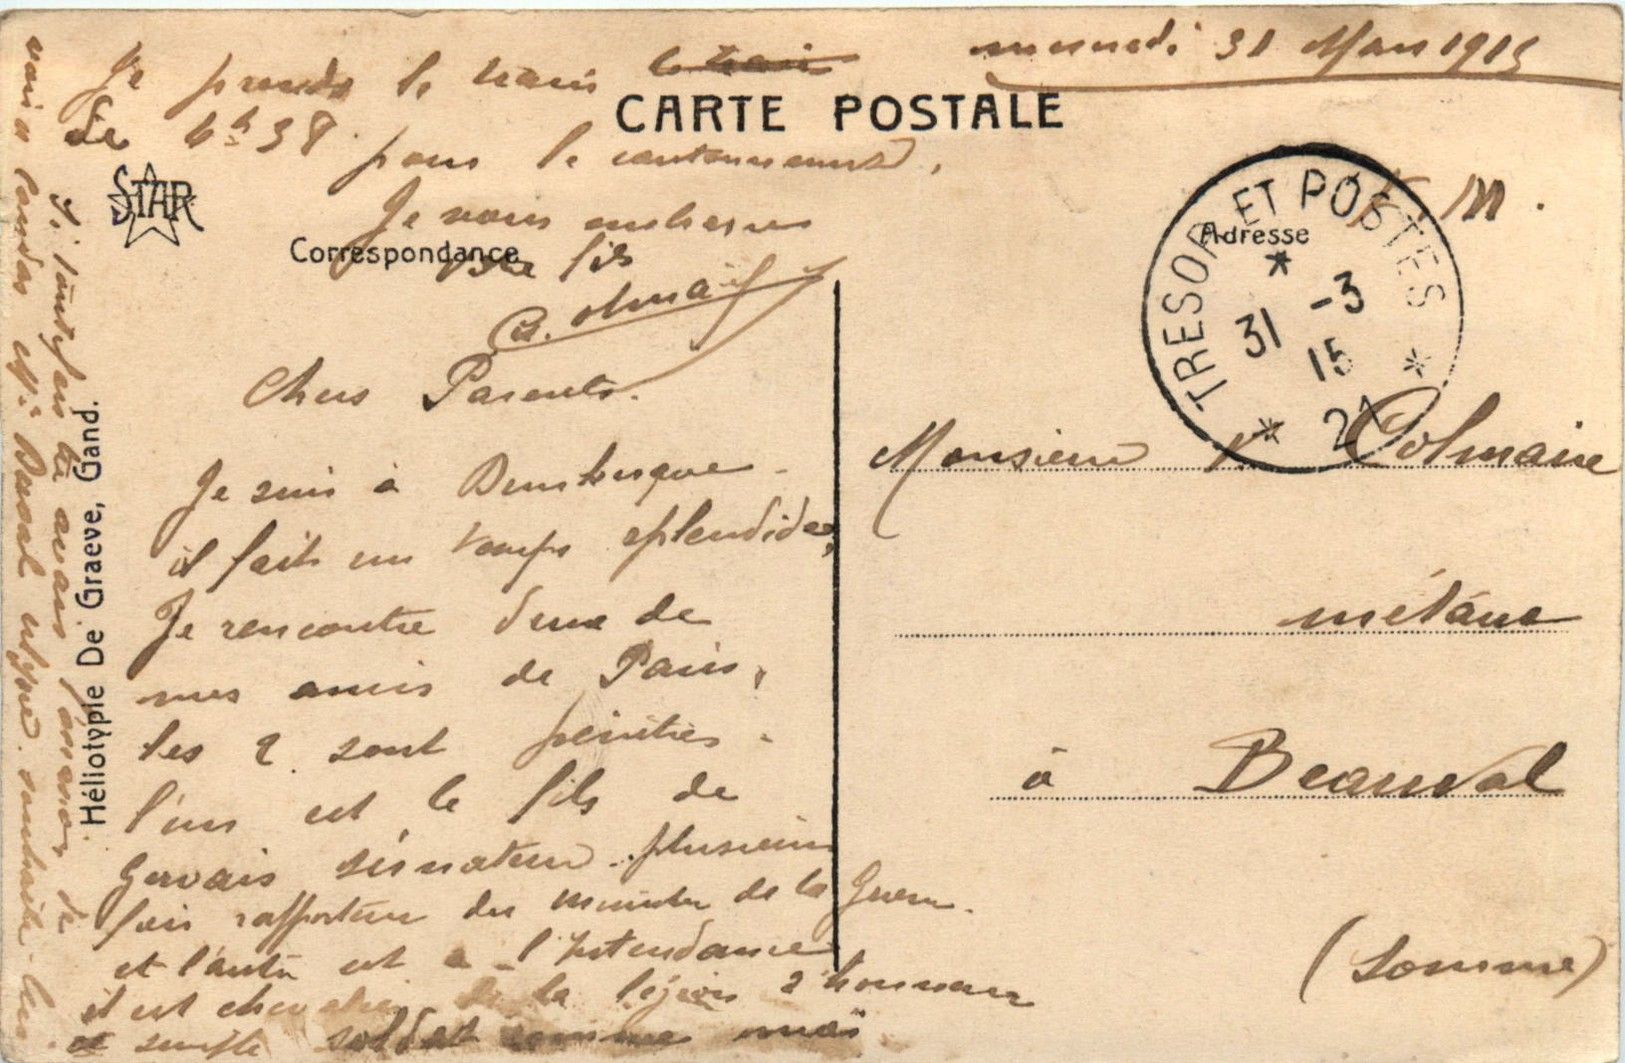 mercredi 31 Mars 1915
Je prends le train le train
de 4h38 pour le cantonnement,
Je vous embrasse
votre fils
Colmaire
CARTE POSTALE
STAR
Correspondance
Adresse
F. M.
TRESOR ET POSTES
31 -3
15
* 21 *
Chers Parents.
Je suis à Dunkerque
il fait un temps splendide,
Je rencontre deux de
mes amis de Paris,
les 2 sont peintres
l'un est le fils de
Gervais sénateur plusieurs
fois rapporteur du ministre de la Guerre
et l'autre est à l'Intendance
il est chevalier de la légion d'honneur
et simple soldat comme moi
Monsieur Colmaire
métáne
à Beauval
(Somme)
Héliotypie De Graeve, Gand.
Si tantes tu avais de